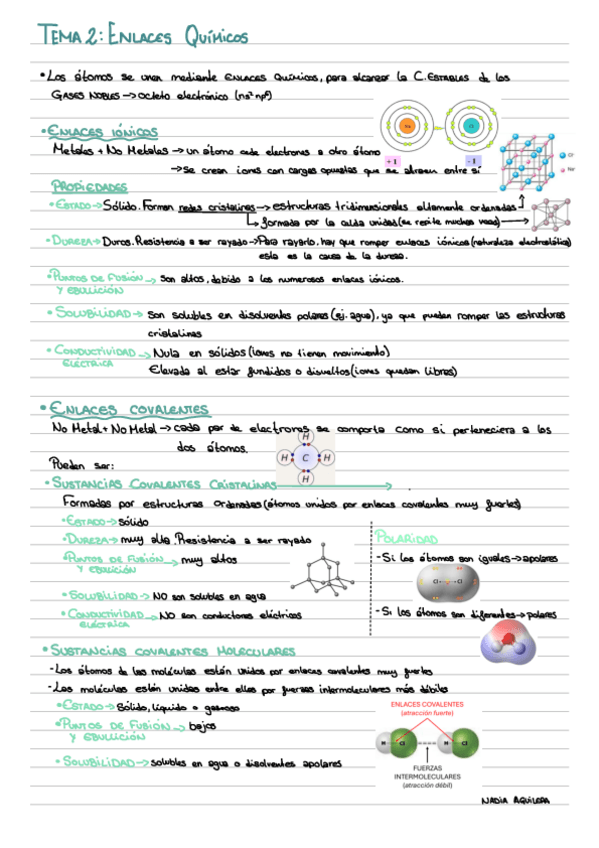 TEMA 2: ENLACES QUÍMICOS
• Los átomos se unen mediante ENLACES QUÍMICOS, para alcanzar la C. ESTABLES de los
GASES NOBLES → octeto electrónico (ns² np⁶)
• ENLACES IÓNICOS
Metales + No Metales → un átomo cede electrones a otro átomo
→ Se crean iones con cargas opuestas que se atraen entre sí
Na
Cl
+1
-1
Cl-
Na+
PROPIEDADES
• ESTADO → Sólido. Forman redes cristalinas → estructuras tridimensionales altamente ordenadas
↳ formada por la celda unidad (se repite muchas veces) →
• DUREZA → Duros. Resistencia a ser rayado → Para rayarlo, hay que romper enlaces iónicos (naturaleza electrostática)
esta es la causa de la dureza.
• PUNTOS DE FUSIÓN Y EBULLICIÓN → Son altos, debido a los numerosos enlaces iónicos.
• SOLUBILIDAD → Son solubles en disolventes polares (ej. agua), ya que pueden romper las estructuras
cristalinas
• CONDUCTIVIDAD ELÉCTRICA → Nula en sólidos (iones no tienen movimiento)
Elevada al estar fundidos o disueltos (iones quedan libres)
• ENLACES COVALENTES
No Metal + No Metal → cada par de electrones se comporta como si perteneciera a los
dos átomos.
H
H C H
H
Pueden ser:
• SUSTANCIAS COVALENTES CRISTALINAS
Formadas por estructuras ordenadas (átomos unidos por enlaces covalentes muy fuertes)
• ESTADO → sólido
• DUREZA → muy alta. Resistencia a ser rayado
• PUNTOS DE FUSIÓN Y EBULLICIÓN → muy altos
• SOLUBILIDAD → NO son solubles en agua
• CONDUCTIVIDAD ELÉCTRICA → NO son conductores eléctricos
POLARIDAD
- Si los átomos son iguales → apolares
Cl Cl
- Si los átomos son diferentes → polares
• SUSTANCIAS COVALENTES MOLECULARES
- Los átomos de las moléculas están unidos por enlaces covalentes muy fuertes
- Las moléculas están unidas entre ellas por fuerzas intermoleculares más débiles
• ESTADO → Sólido, líquido o gaseoso
• PUNTOS DE FUSIÓN Y EBULLICIÓN → bajos
• SOLUBILIDAD → solubles en agua o disolventes apolares
ENLACES COVALENTES
(atracción fuerte)
H Cl H Cl
FUERZAS
INTERMOLECULARES
(atracción débil)
NADIA AGUILERA